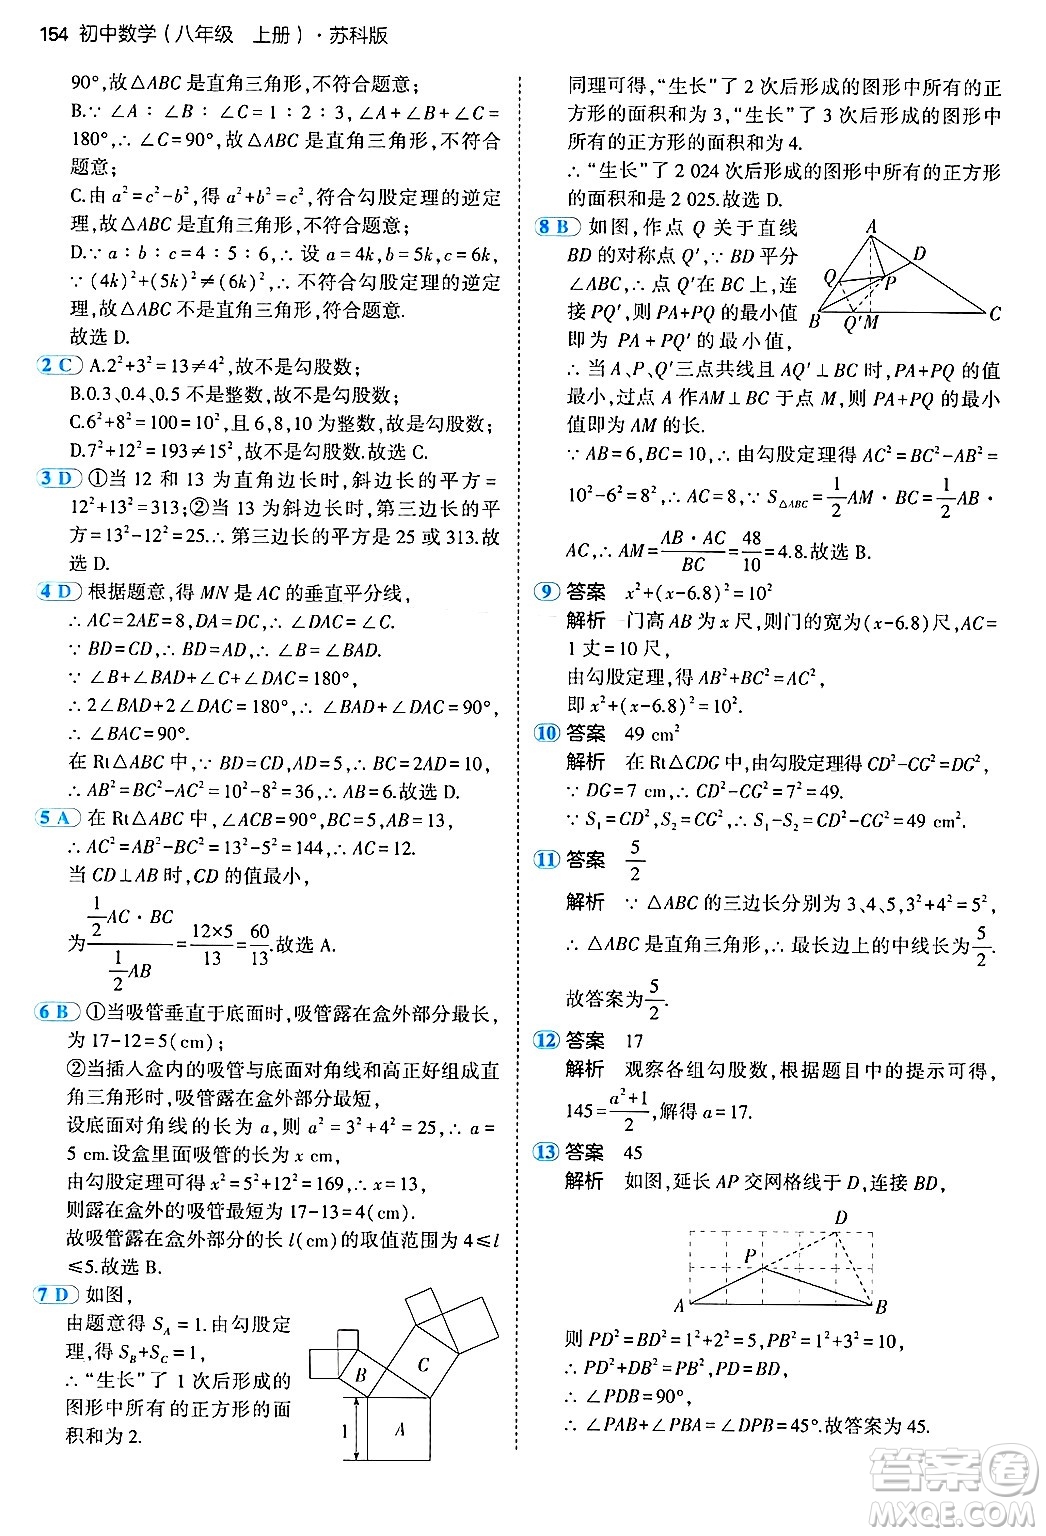 154 初中数学(八年级 上册)·苏科版
90°,故△ABC是直角三角形,不符合题意;
B.∵∠A∶∠B∶∠C=1∶2∶3,∠A+∠B+∠C=
180°,∴∠C=90°,故△ABC是直角三角形,不符合
题意;
C.由a²=c²-b²,得a²+b²=c²,符合勾股定理的逆定
理,故△ABC是直角三角形,不符合题意;
D.∵a∶b∶c=4∶5∶6,∴设a=4k,b=5k,c=6k,
∵(4k)²+(5k)²≠(6k)²,∴不符合勾股定理的逆
定理,故△ABC不是直角三角形,符合题意.
故选D.
2 C A.2²+3²=13≠4²,故不是勾股数;
B.0.3、0.4、0.5不是整数,故不是勾股数;
C.6²+8²=100=10²,且6,8,10为整数,故是勾股数;
D.7²+12²=193≠15²,故不是勾股数.故选C.
3 D ①当12和13为直角边长时,斜边长的平方=
12²+13²=313;②当13为斜边长时,第三边长的平
方=13²-12²=25.∴第三边长的平方是25或313.故
选D.
4 D 根据题意,得MN是AC的垂直平分线,
∴AC=2AE=8,DA=DC,∴∠DAC=∠C.
∵BD=CD,∴BD=AD,∴∠B=∠BAD.
∵∠B+∠BAD+∠C+∠DAC=180°,
∴2∠BAD+2∠DAC=180°,∴∠BAD+∠DAC=90°,
∴∠BAC=90°.
在Rt△ABC中,∵BD=CD,AD=5,∴BC=2AD=10,
∴AB²=BC²-AC²=10²-8²=36,∴AB=6.故选D.
5 A 在Rt△ABC中,∠ACB=90°,BC=5,AB=13,
∴AC²=AB²-BC²=13²-5²=144,∴AC=12.
当CD⊥AB时,CD的值最小,
为 (1/2 AC·BC)/(1/2 AB)=12×5/13=60/13.故选A.
6 B ①当吸管垂直于底面时,吸管露在盒外部分最长,
为17-12=5(cm);
②当插入盒内的吸管与底面对角线和高正好组成直
角三角形时,吸管露在盒外部分最短,
设底面对角线的长为a,则a²=3²+4²=25,∴a=
5 cm.设盒里面吸管的长为x cm,
由勾股定理得x²=12²+5²=169,∴x=13,
则露在盒外的吸管最短为17-13=4(cm),
故吸管露在盒外部分的长l(cm)的取值范围为4≤l
≤5.故选B.
7 D 如图,
由题意得S_A=1.由勾股定
理,得S_B+S_C=1,
∴“生长”了1次后形成的
图形中所有的正方形的面
积和为2.
B
C
1
A
同理可得,“生长”了2次后形成的图形中所有的正
方形的面积和为3,“生长”了3次后形成的图形中
所有的正方形的面积和为4.
∴“生长”了2 024次后形成的图形中所有的正方形
的面积和是2 025.故选D.
8 B 如图,作点Q关于直线
BD的对称点Q′,∵BD平分
∠ABC,∴Q′在BC上,连
接PQ′,则PA+PQ的最小值
即为PA+PQ′的最小值,
A
D
Q
P
B
Q′ M
C
∴当A、P、Q′三点共线且AQ′⊥BC时,PA+PQ的值
最小,过点A作AM⊥BC于点M,则PA+PQ的最小
值即为AM的长.
∵AB=6,BC=10,∴由勾股定理得AC²=BC²-AB²=
10²-6²=8²,∴AC=8,∵S△ABC=1/2 AM·BC=1/2 AB·
AC,∴AM=AB·AC/BC=48/10=4.8.故选B.
9 答案 x²+(x-6.8)²=10²
解析 门高AB为x尺,则门的宽为(x-6.8)尺,AC=
1丈=10尺,
由勾股定理,得AB²+BC²=AC²,
即x²+(x-6.8)²=10².
10 答案 49 cm²
解析 在Rt△CDG中,由勾股定理得CD²-CG²=DG²,
∵DG=7 cm,∴CD²-CG²=7²=49.
∵S₁=CD²,S₂=CG²,∴S₁-S₂=CD²-CG²=49(cm²).
11 答案 5/2
解析 ∵△ABC的三边长分别为3、4、5,3²+4²=5²,
∴△ABC是直角三角形,∴最长边上的中线长为5/2,
故答案为5/2.
12 答案 17
解析 观察各组勾股数,根据题目中的提示可得,
145=(a²+1)/2,解得a=17.
13 答案 45
解析 如图,延长AP交网格线于D,连接BD,
D
P
A
B
则PD²=BD²=1²+2²=5,PB²=1²+3²=10,
∴PD²+DB²=PB²,PD=BD,
∴∠PDB=90°,
∴∠PAB+∠PBA=∠DPB=45°.故答案为45.
答案圈
MXQE.COM